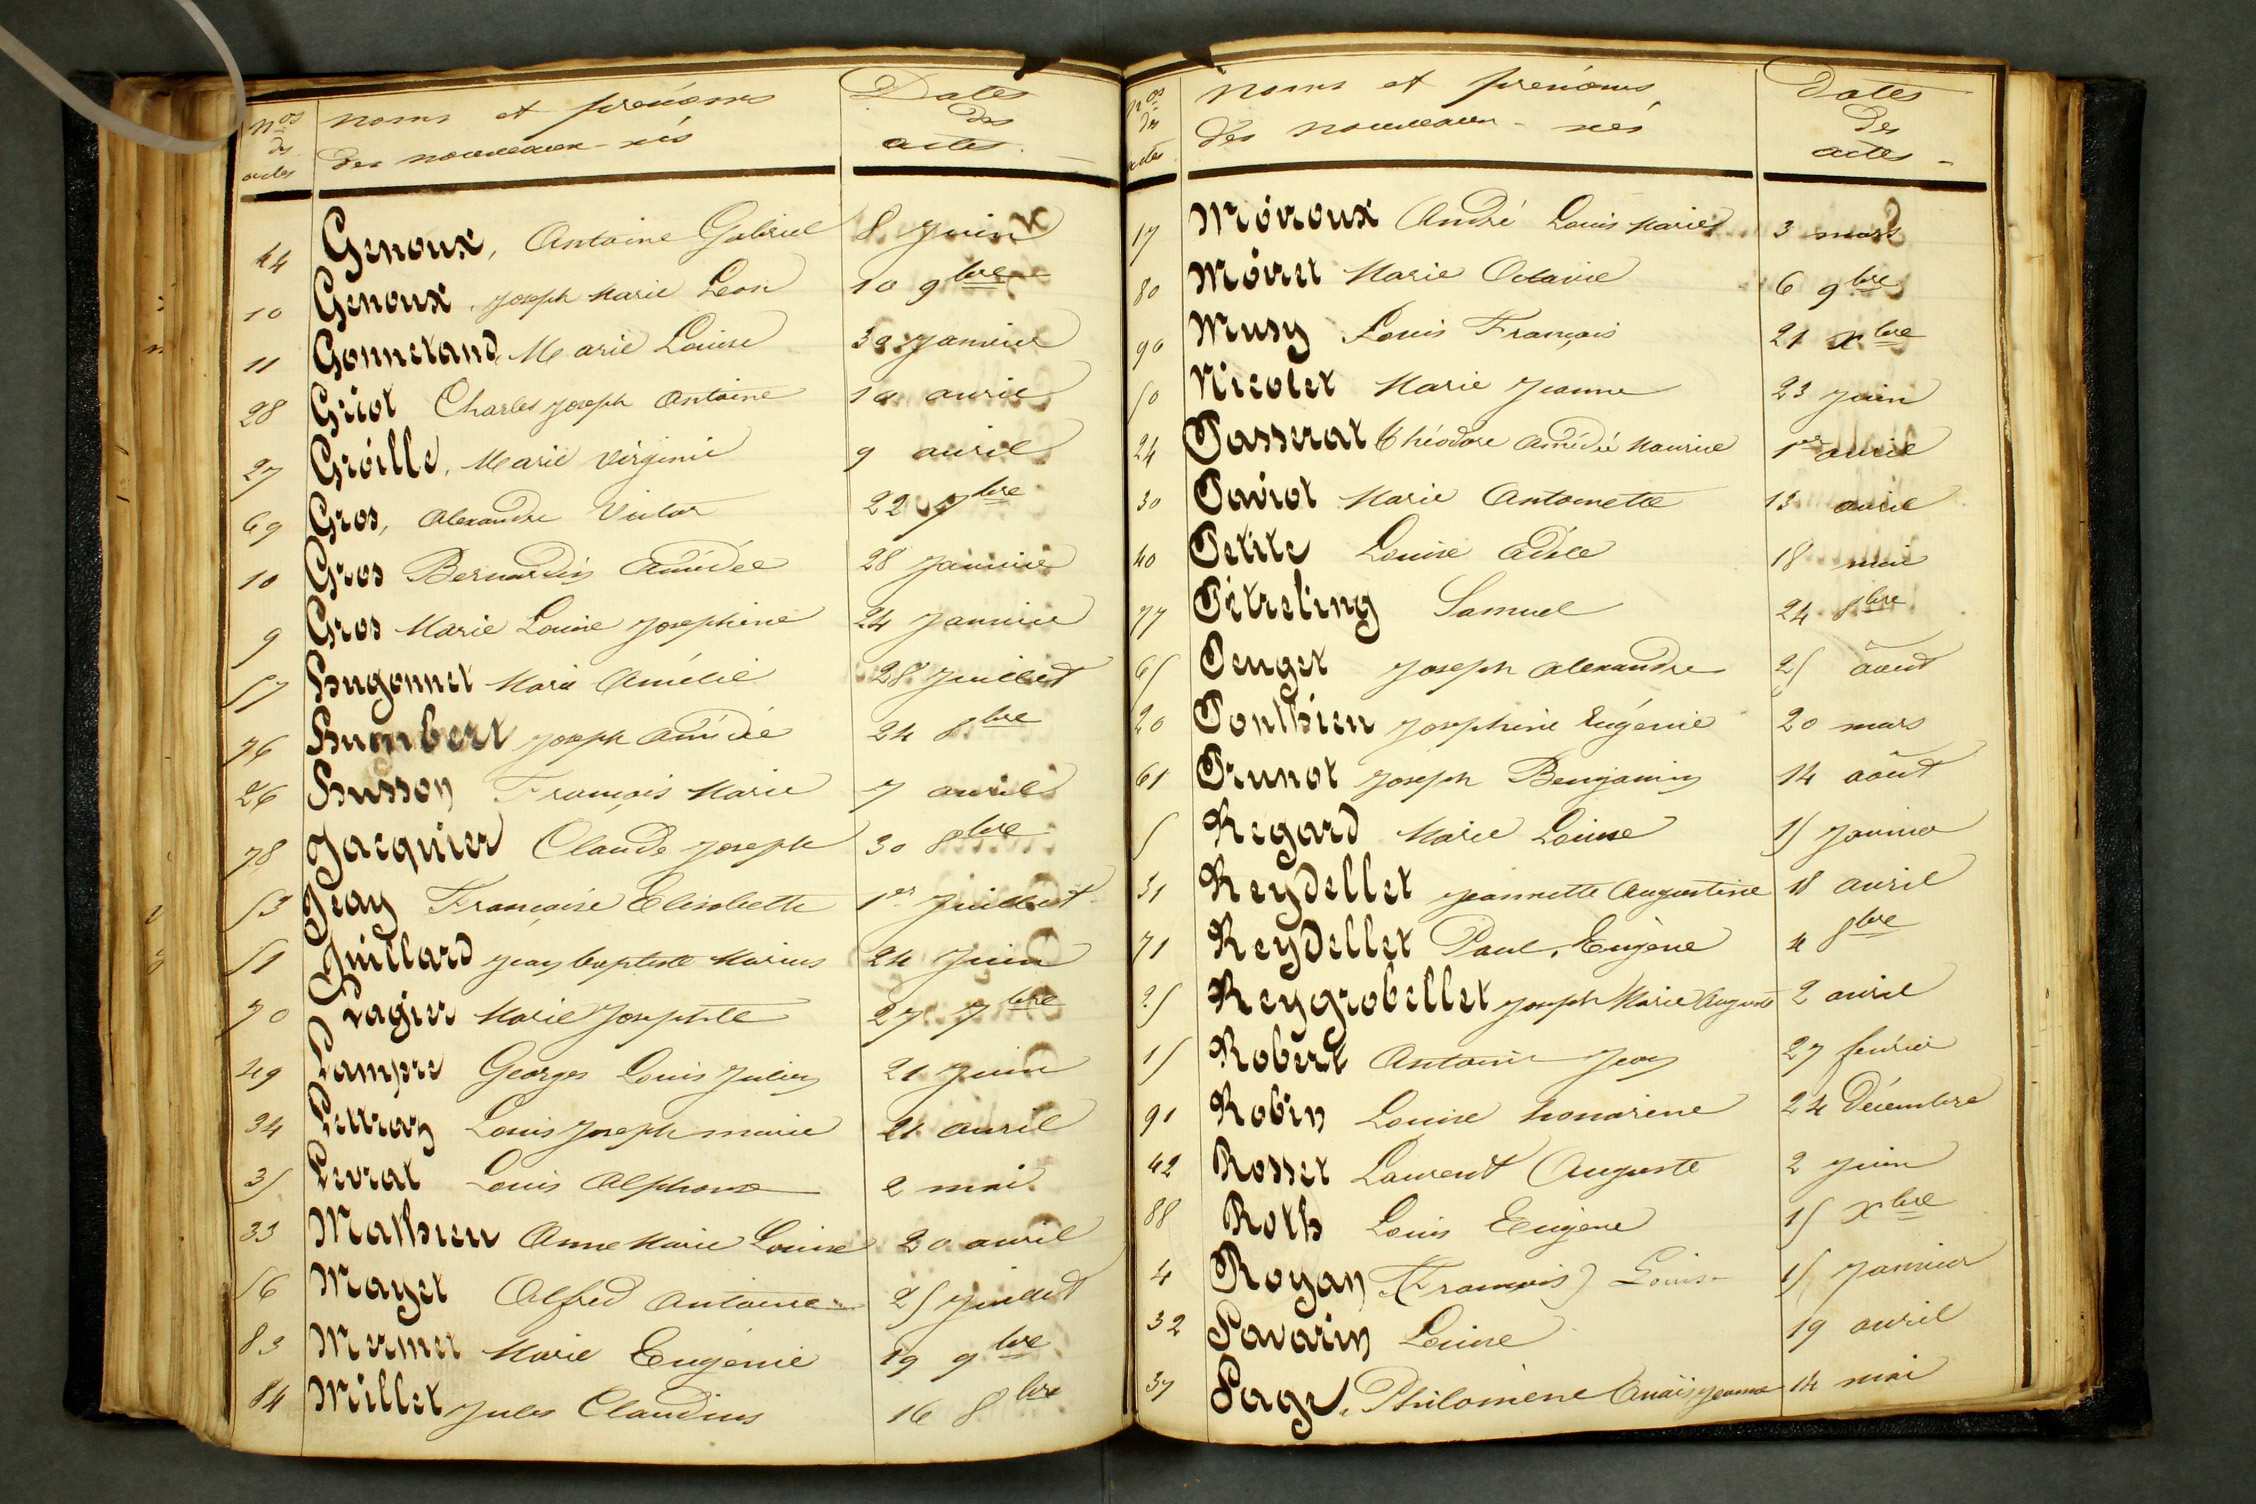 Nos des actes | noms et prénoms des nouveaux-nés | Dates des actes.
44 Genoux, Antoine Gabriel 8 Juin
10 Genoux, Joseph Marie Léon 10 9bre
11 Gonnetand, Marie Louise 30 Janvier
28 Griot Charles Joseph Antoine 10 avril
27 Groille, Marie Virginie 9 avril
69 Gros, Alexandre Victor 22 7bre
10 Gros Bernardin Amédée 28 Janvier
9 Gros Marie Louise Joséphine 24 Janvier
57 Hugonnet Marie Amélie 28 Juillet
76 Humbert Joseph Amédée 24 8bre
26 Husson François Marie 7 avril
78 Jacquier Claude Joseph 30 8bre
53 Jeay Françoise Elisabette 1er Juillet
51 Juillard Jean Baptiste Marius 24 Juin
70 Lagier Marie Josephte 27 7bre
49 Lampre Georges Louis Julien 21 Juin
34 Louis Joseph marie 21 avril
35 Levrat Louis Alphonse 2 mai
33 Mathieu Anne Marie Louise 20 avril
56 Mayet Alfred Antoine 25 Juillet
83 Mermet Marie Eugénie 19 9bre
84 Millet Jules Claudius 16 8bre
Nos des actes | noms et prénoms des nouveaux-nés | Dates des actes
17 Moiroux André Louis Marie 3 mars
80 Moiret Marie Octavie 6 9bre
90 Musy Louis François 21 Xbre
50 Nicolet Marie Jeanne 23 Juin
24 Passerat Théodore Amédée Maurice 1er avril
30 Paviot Marie Antoinette 13 avril
40 Petite Louise Adèle 18 mai
77 Pitreling Samuel 24 8bre
65 Peuget Joseph Alexandre 25 août
20 Ponthieu Joséphine Eugénie 20 mars
61 Prunot Joseph Benjamin 14 août
5 Regard Marie Louise 15 Janvier
31 Reydellet Jeannette Augustine 18 avril
71 Reydellet Paul, Eugène 4 8bre
25 Reygrobellet Joseph Marie August 2 avril
15 Robert Antoine Jean 27 février
91 Robin Louise honorine 24 Décembre
42 Rosset Laurent Auguste 2 Juin
88 Roth Louis Eugène 15 Xbre
4 Royan (François) Louis 15 Janvier
32 Savarin Louise 19 avril
37 Sage, Philomène Anaïs Jeanne 14 mai